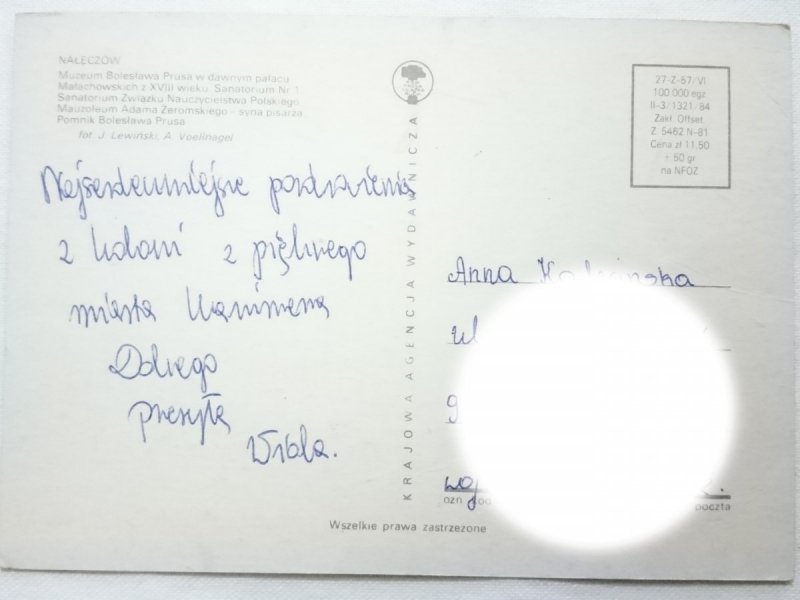 NAŁĘCZÓW
Muzeum Bolesława Prusa w dawnym pałacu
Małachowskich z XVIII wieku. Sanatorium Nr 1.
Sanatorium Związku Nauczycielstwa Polskiego.
Mauzoleum Adama Żeromskiego – syna pisarza.
Pomnik Bolesława Prusa
fot. J. Lewiński, A. Voellnagel
Najserdeczniejsze pozdrowienia
z koloni z pięknego
miasta Kazimierza
Dolnego
przesyła
Wiola.
KRAJOWA AGENCJA WYDAWNICZA
27-Z-57/VI
100 000 egz
II-3/1321/84
Zakł. Offset.
Z. 5462 N-81
Cena zł 11,50
+ 50 gr
na NFOZ
Anna
ul
woj
poczta
Wszelkie prawa zastrzeżone